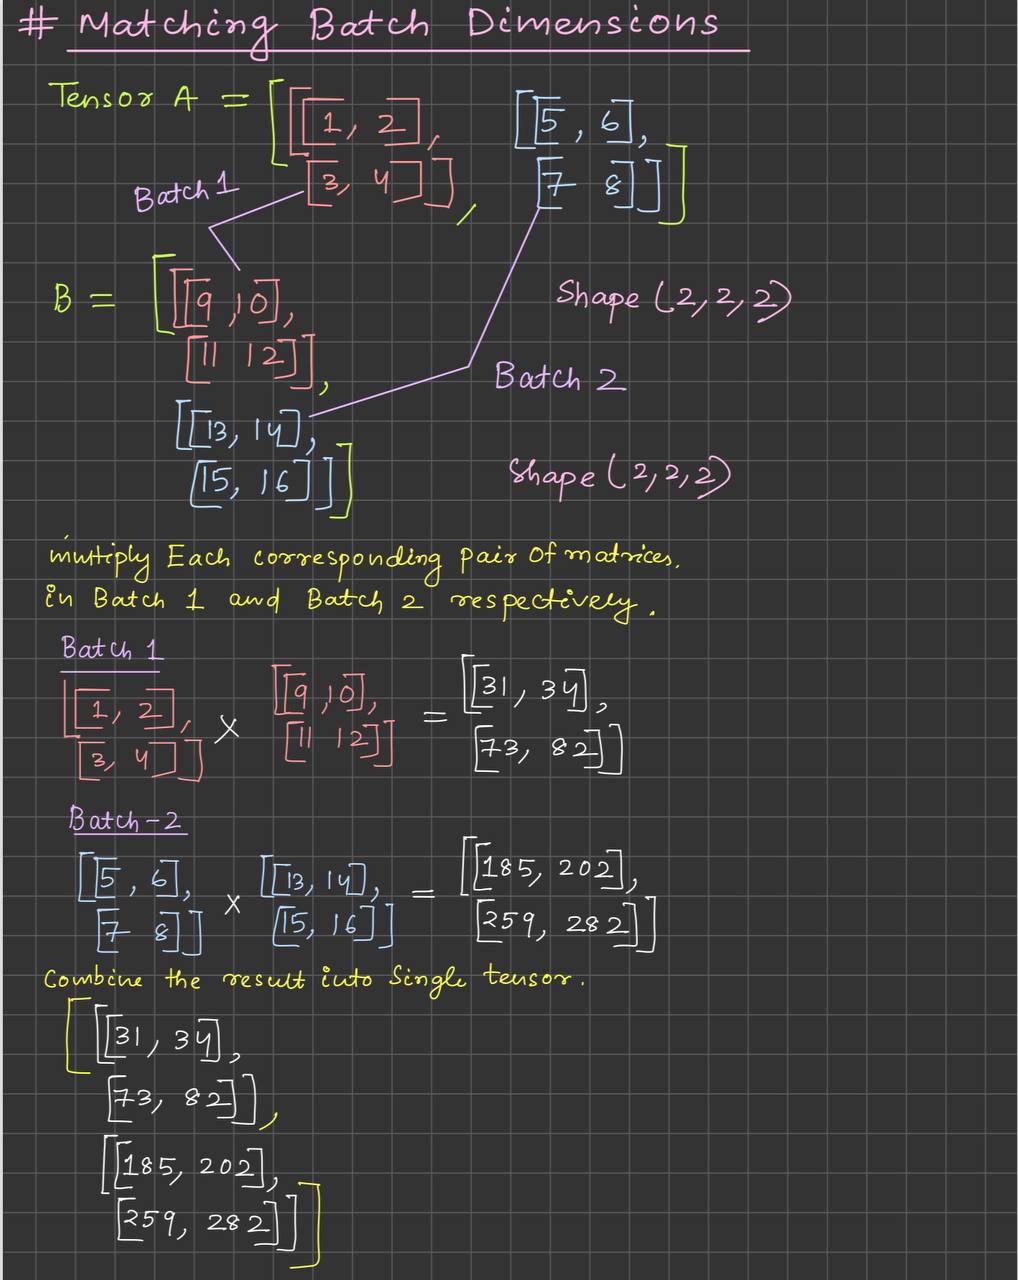 # Matching Batch Dimensions
Tensor A = [[[1, 2], [[5, 6],
[3, 4]], [7 8]]]
Batch 1
B = [[[9, 10], Shape (2,2,2)
[11 12]],
Batch 2
[[13, 14],
[15, 16]]] Shape (2,2,2)
multiply Each corresponding pair of matrices.
in Batch 1 and Batch 2 respectively.
Batch 1
[[1, 2], × [[9, 10], = [[31, 34],
[3, 4]] [11 12]] [73, 82]]
Batch-2
[[5, 6], × [[13, 14], = [[185, 202],
[7 8]] [15, 16]] [259, 282]]
Combine the result into Single tensor.
[[[31, 34],
[73, 82]],
[[185, 202],
[259, 282]]]